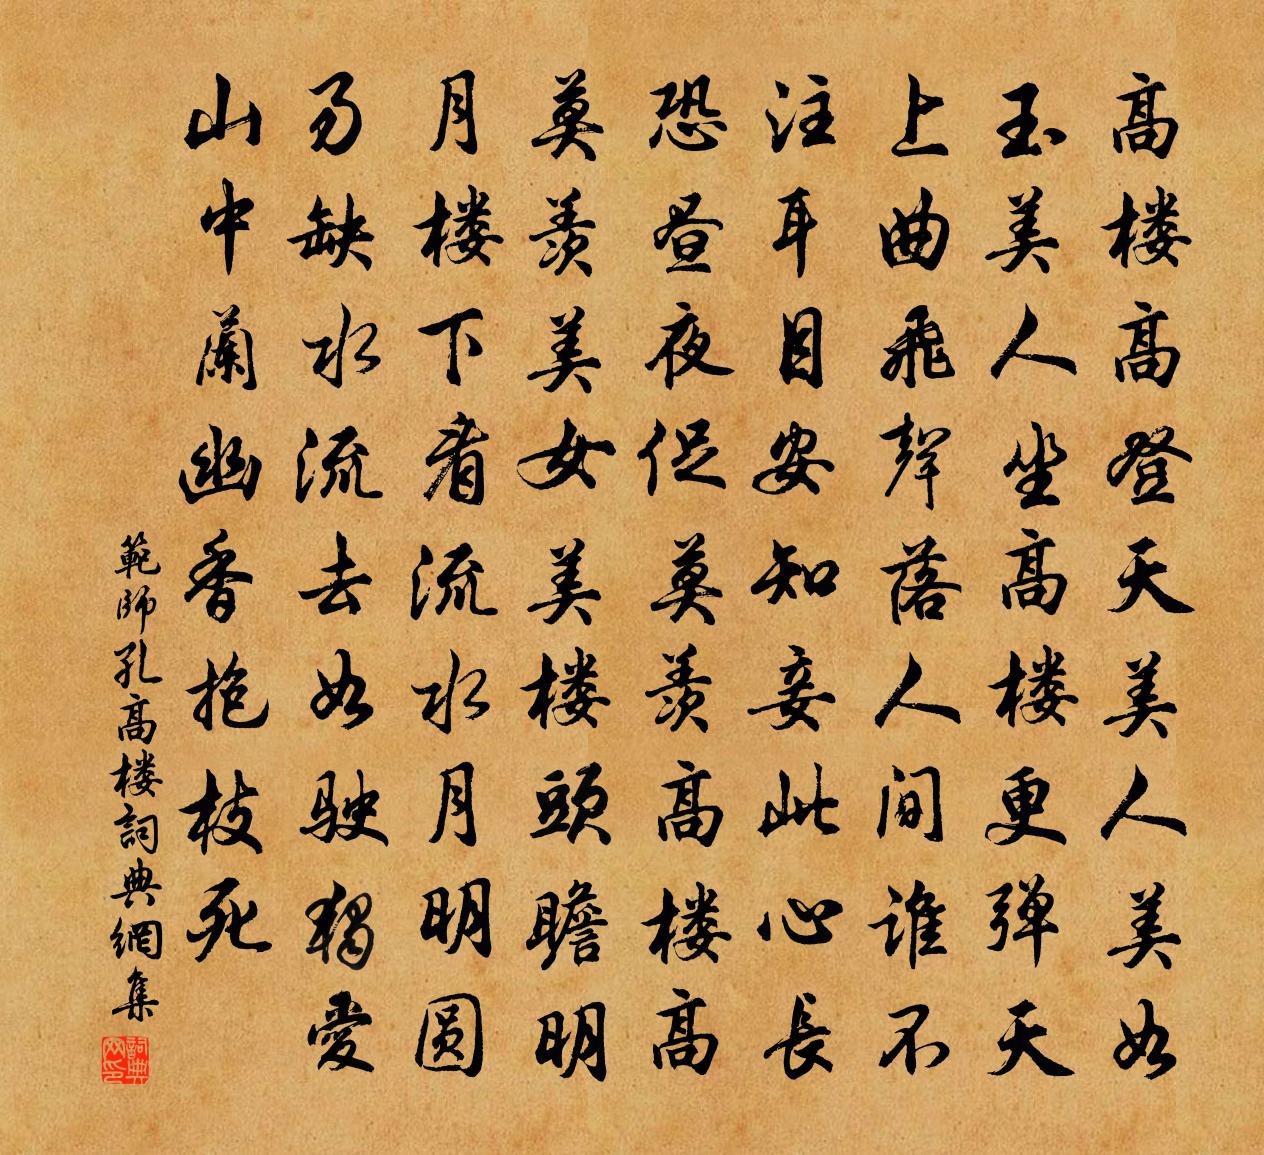 高楼高登天美人美如
玉美人坐高楼更弹天
上曲飛聲落人间谁不
注耳目安知妾此心長
恐昼夜促莫羨高楼高
莫羨美女美楼頭瞻明
月楼下看流水月明圆
易缺水流去如駛独愛
山中蘭幽香抱枝死
範師孔高楼詞典網集
詞典网印